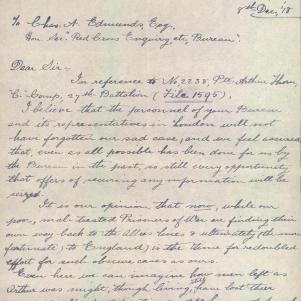 8th Dec, '18
To Chas. A. Edmunds, Esq,
Hon Sec. "Red Cross Enquiry, etc, Bureau".
Dear Sir:-
In reference to No. 2238, Pte Arthur Thorn,
"C" Comp, 27th Battalion (File 1595),
I believe that the personnel of your Bureau
and its representatives in London will not
have forgotten our sad case, and we feel assured
that, even as all possible has been done for us by
the Bureau in the past, so still every opportunity
that offers of securing any information will be
seized.
It is our opinion that now, while our
poor, mal-treated Prisoners of War are finding their
own way back to the Allies lines & ultimately (the more
fortunate) to England, is the time for redoubled
effort for such obscure cases as ours.
Even here we can imagine how men left as
Arthur was might, though living, have lost their